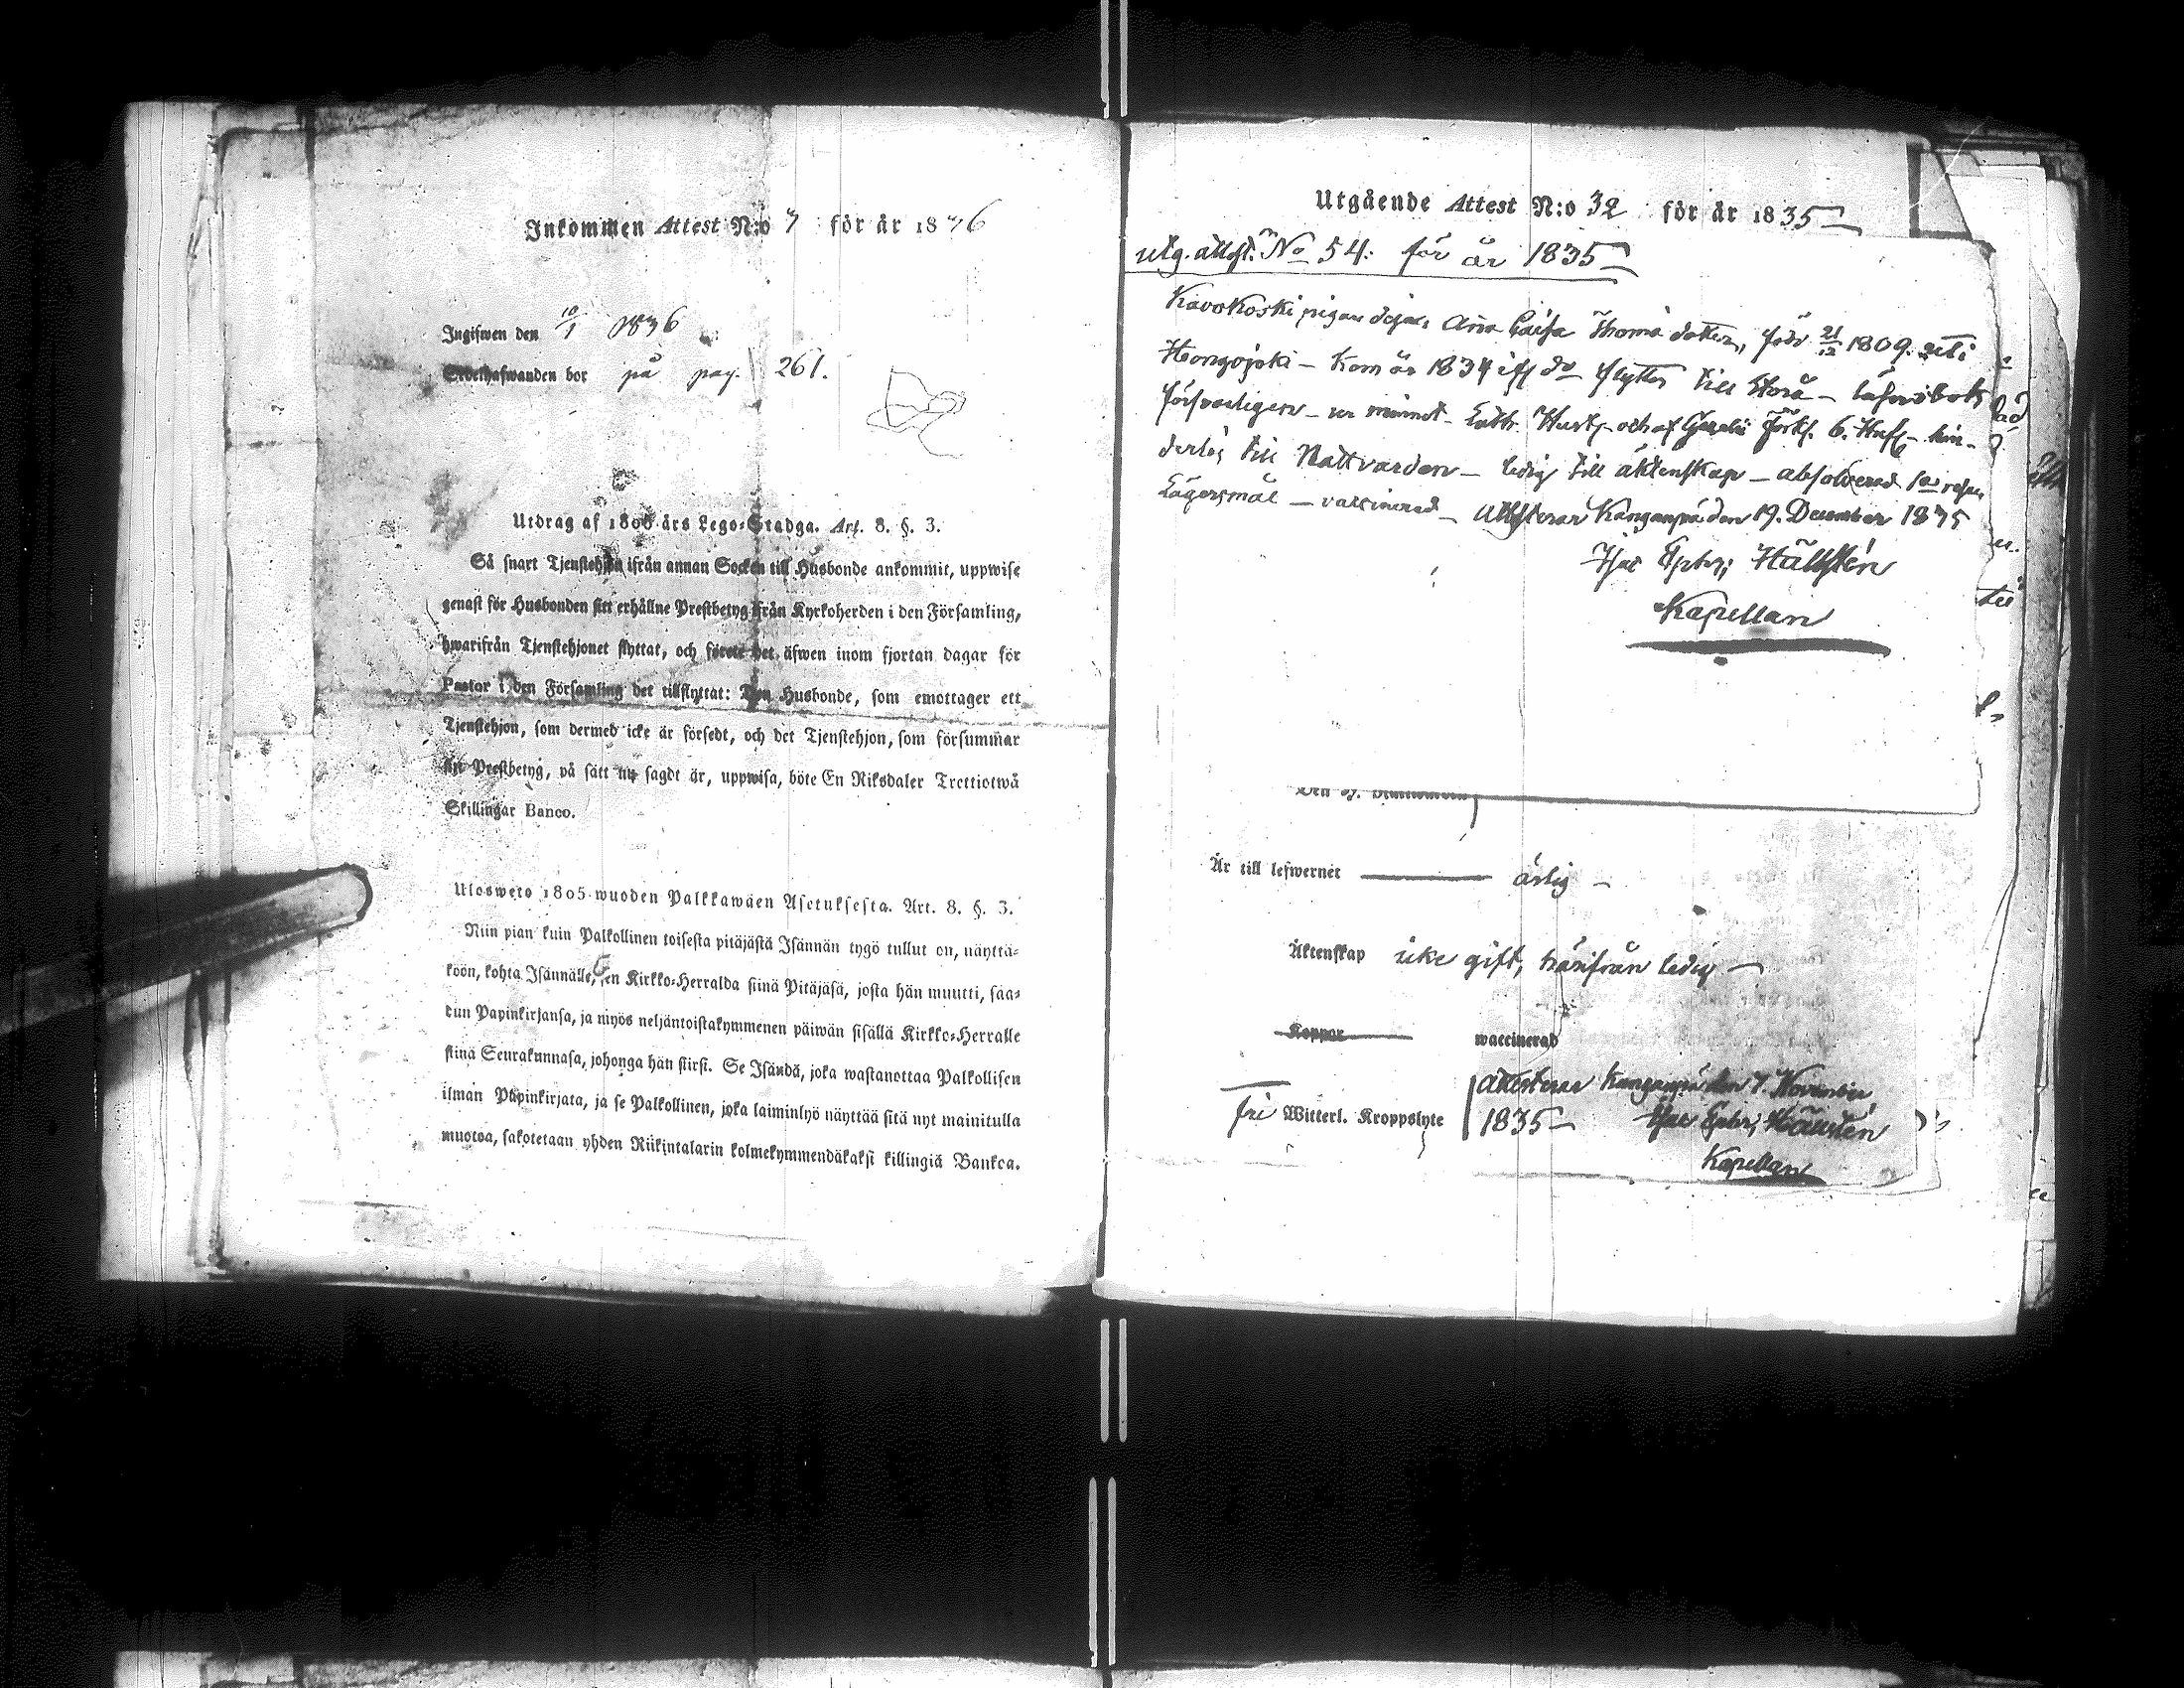 Inkommen Attest N:o 7 för år 1836
Ingifwen den 10/1 1836
bor på pag. 261.
Utdrag af 1805 års Lego-Stadga. Art. 8. §. 3.
Så snart Tjenstehjon ifrån annan Socken till Husbonde ankommit, uppwise
genast för Husbonden sitt erhållne Prestbetyg från Kyrkoherden i den Församling,
hwarifrån Tjenstehjonet flyttat, och förete det äfwen inom fjortan dagar för
Pastor i den Församling det tillflyttat: Den Husbonde, som emottager ett
Tjenstehjon, som dermed icke är försedt, och det Tjenstehjon, som försummar
sin Prestbetyg, på sätt nu sagdt är, uppwisa, böte En Riksdaler Trettiotwå
Skillingar Banco.
Ulosweto 1805 wuoden Palkkawäen Asetuksesta. Art. 8. §. 3.
Niin pian kuin Palkollinen toisesta pitäjästä Isännän tygö tullut on, näyttä-
köön, kohta Isännälle, sen Kirkko-Herralda siinä Pitäjäsä, josta hän muutti, saa-
dun Papinkirjansa, ja myös neljäntoistakymmenen päiwän sisällä Kirkko-Herralle
siinä Seurakunnasa, johonga hän siirsi. Se Isändä, joka wastanottaa Palkollisen
ilman Papinkirjata, ja se Palkollinen, joka laiminlyö näyttää sitä nyt mainitulla
muotoa, sakotetaan yhden Riikintalarin kolmekymmendäkaksi killingiä Bankoa.
Utgående Attest N:o 32 för år 1835
utg. attest. No 54. för år 1835
Kavokoski pigan Anna Caisa Thomä dotter, född 21/12 1809. uti
Hongojoki - kom år 1834 flyttar till Storå - läser i bok
försvarligen - ur minnet - Luth. Hust. och af Förkl. 6. Huf. - hin-
derlös till Nattvarden - ledig till äktenskap - absolverad
Lägersmål - vaccinerad - attesterar Kangaspä den 19. December 1835
Isac Hällstén
Kapellan
Är till lefwernet ärlig -
Äktenskap icke gift, härifrån ledig -
Koppor waccinerad
fri Witterl. Kroppslyte attesterar den 7. November
1835 Isac Hällstén
Kapellan